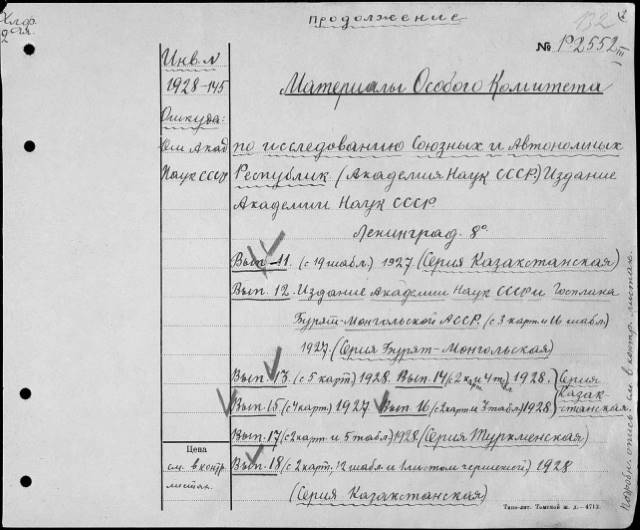 Продолжение
№ Р2552
III
Инв. №
1928-145
Откуда:
Ак Акад
Наук СССР
Материалы Особого Комитета
по исследованию Союзных и Автономных
Республик (Академия Наук СССР.) Издание
Академии Наук СССР
Ленинград. 8°.
Вып. 11. (с 19 табл.) 1927 (Серия Казакстанская)
Вып. 12. Издание Академии Наук СССР и Госплана
Бурят-Монгольской АССР. (с 3 карт. и 16 табл.)
1927. (Серия Бурят-Монгольская)
Вып. 13. (с 5 карт) 1928. Вып. 14 1928.
Вып. 15 (с 4 карт.) 1927. Вып. 16 (с 2 карт и 3 табл.) 1928
Серия
Казак-
станская.
Вып. 17 (с 2 карт. и 5 табл.) 1928 (Серия Туркменская)
Вып. 18 (с 2 карт., 12 табл. и 1 листом чертежей) 1928
(Серия Казакстанская)
Цена
см. в контр.
листах.
Подробн. опись см. в контр. листах.
Типо-лит. Томской ж. д.—4713.